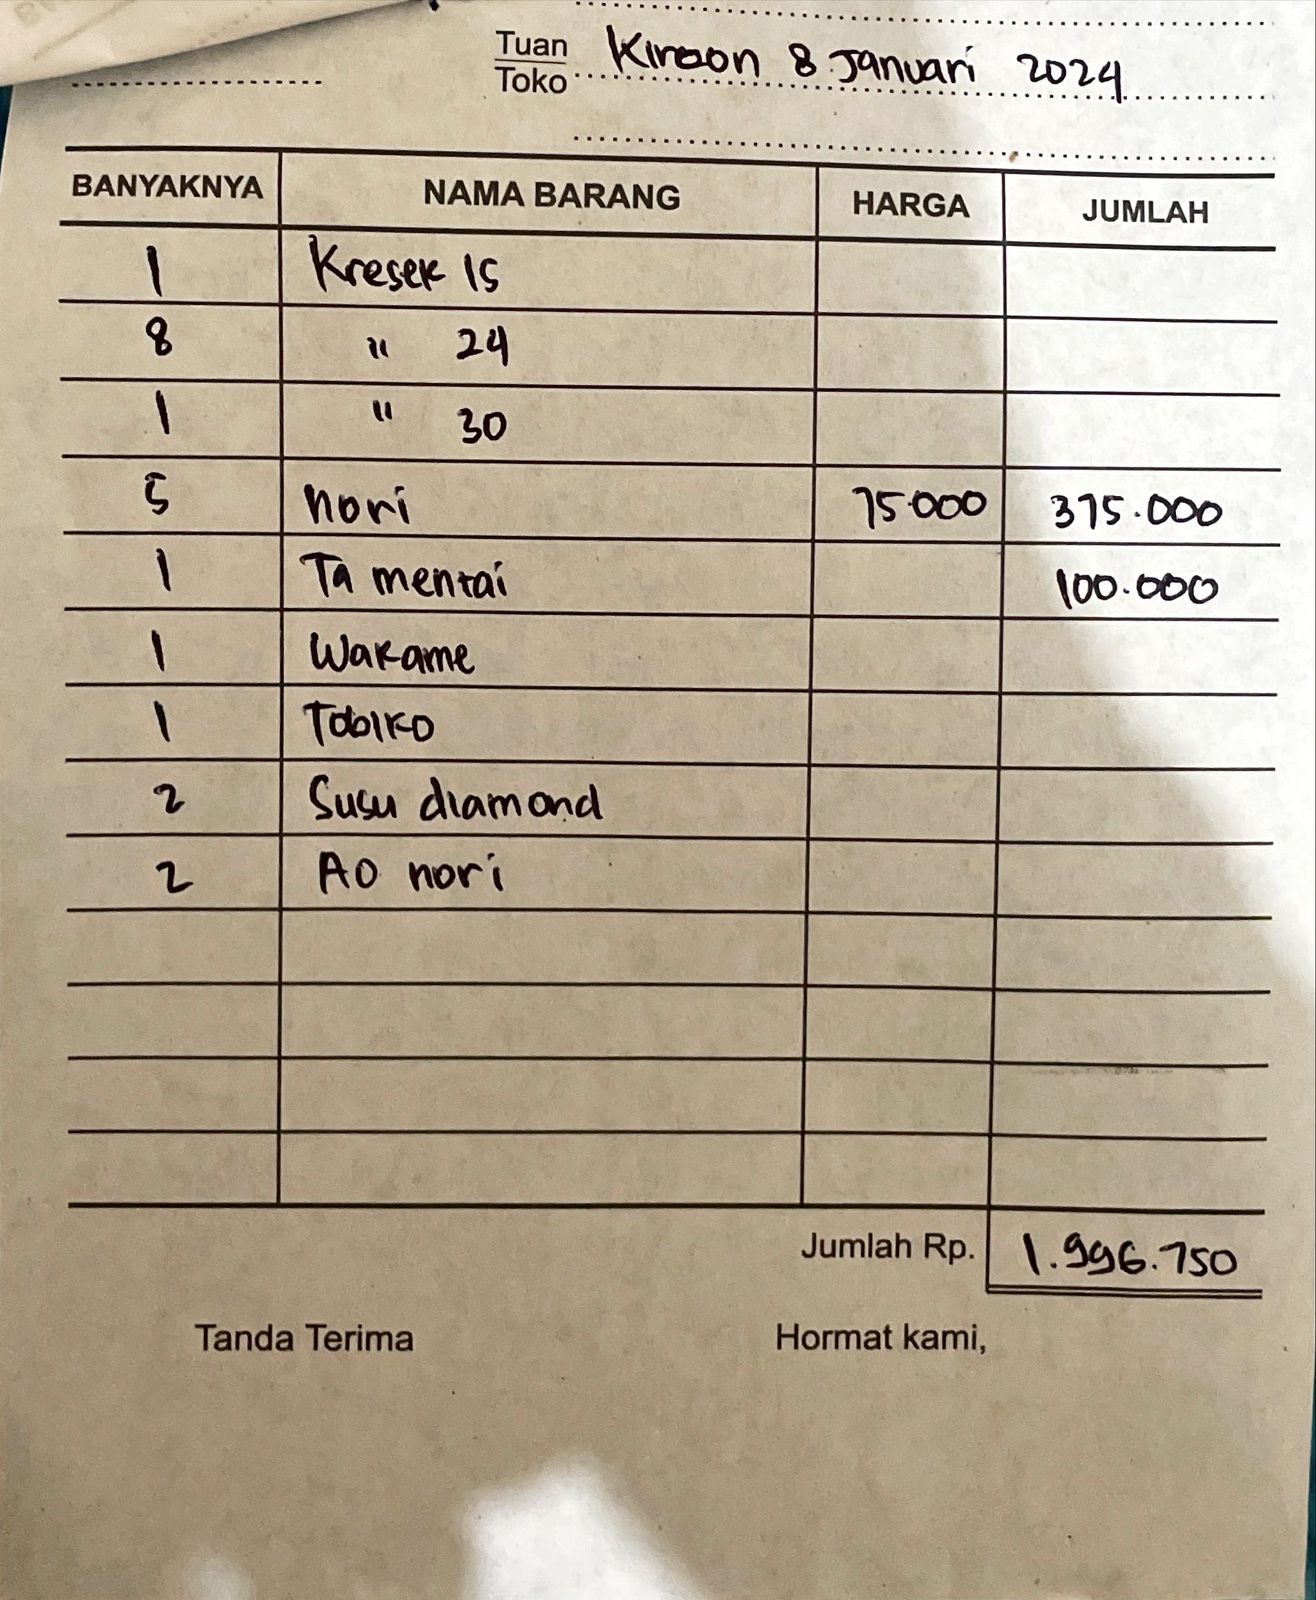 Tuan
Toko
Kiroon 8 Januari 2024
BANYAKNYA NAMA BARANG HARGA JUMLAH
1 Kresek 15
8 " 24
1 " 30
5 nori 75.000 375.000
1 Ta mentai 100.000
1 Wakame
1 Tobiko
2 Susu diamond
2 AO nori
Jumlah Rp. 1.996.750
Tanda Terima Hormat kami,